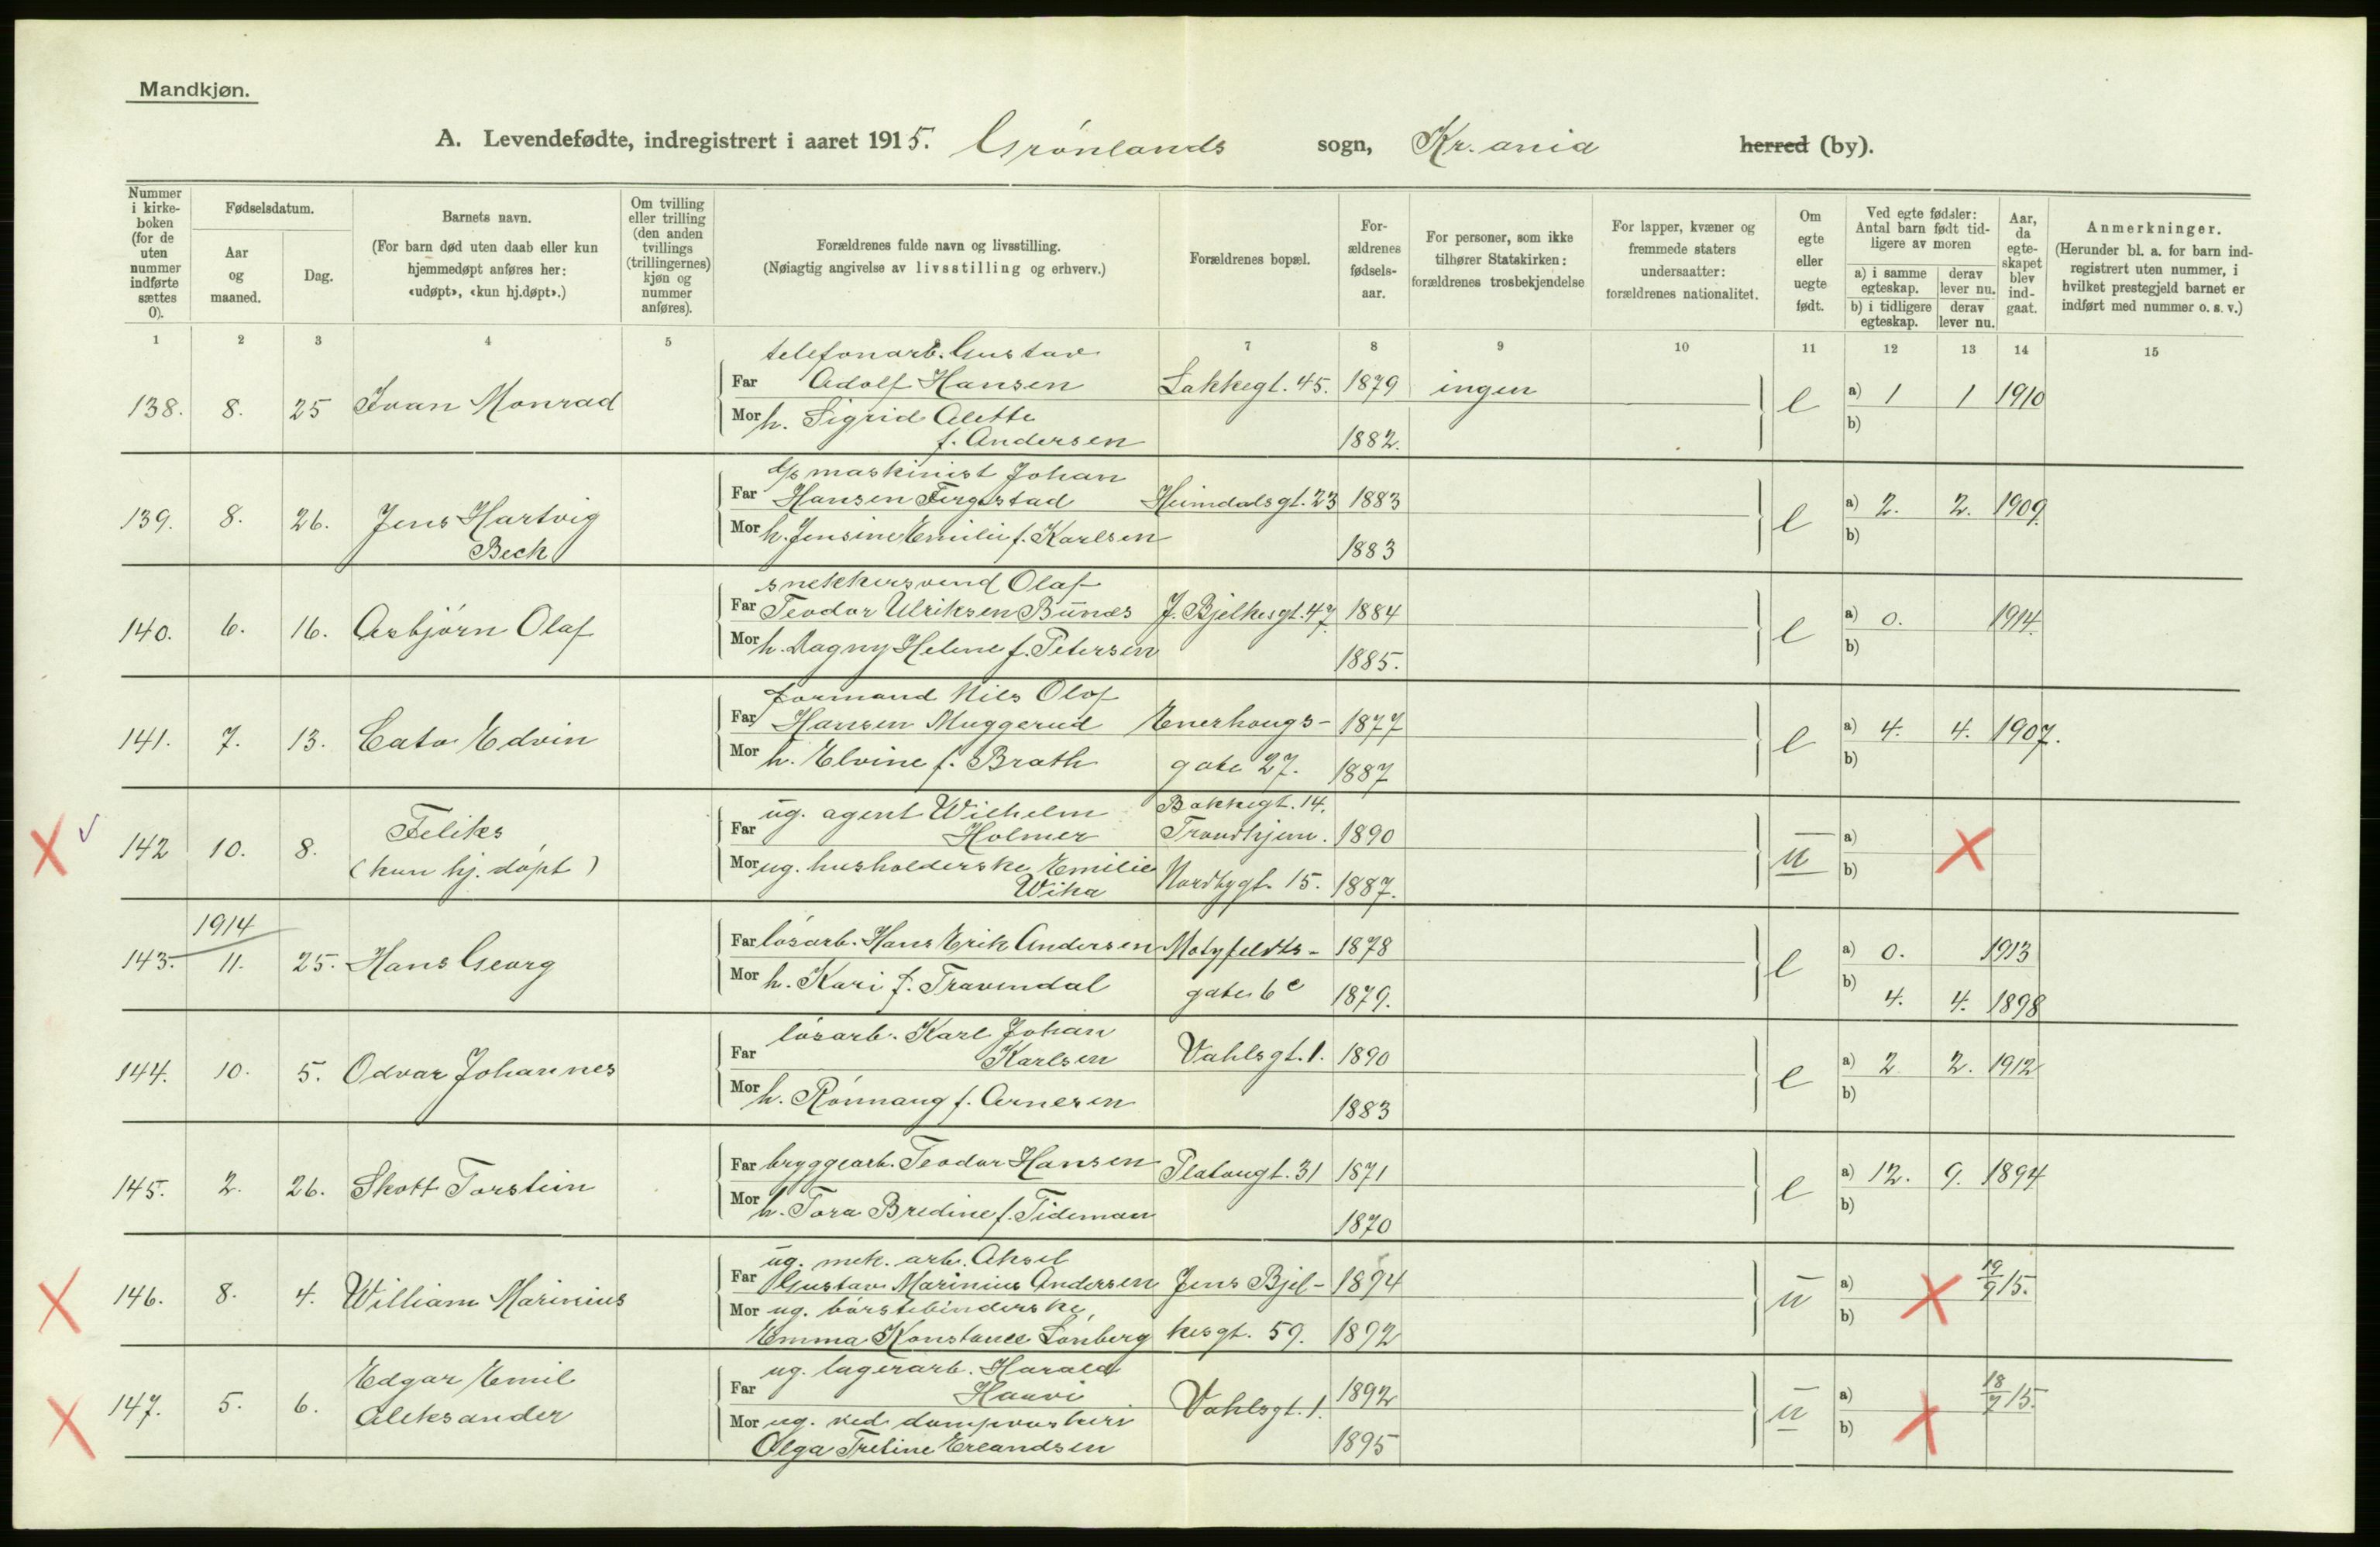 Mandkjøn.
A. Levendefødte, indregistrert i aaret 1915. Grønlands sogn, Kr.ania herred (by).
Nummer i kirkeboken (for de uten nummer indførte sættes 0).
Fødselsdatum.
Aar og maaned.
Dag.
Barnets navn.
(For barn død uten daab eller kun hjemmedøpt anføres her: «udøpt», «kun hj.døpt».)
Om tvilling eller trilling (den anden tvillings (trillingernes) kjøn og nummer anføres).
Forældrenes fulde navn og livsstilling.
(Nøiagtig angivelse av livsstilling og erhverv.)
Forældrenes bopæl.
Forældrenes fødselsaar.
For personer, som ikke tilhører Statskirken: forældrenes trosbekjendelse
For lapper, kvæner og fremmede staters undersaatter: forældrenes nationalitet.
Om egte eller uegte født.
Ved egte fødsler: Antal barn født tidligere av moren
a) i samme egteskap.
derav lever nu.
b) i tidligere egteskap.
derav lever nu.
Aar, da egteskapet blev indgaat.
Anmerkninger.
(Herunder bl. a. for barn indregistrert uten nummer, i hvilket prestegjeld barnet er indført med nummer o. s. v.)
1 2 3 4 5 7 8 9 10 11 12 13 14 15
telefonarb. Gustav
138. 8. 25 Ivan Monrad Far Adolf Hansen Lakkegt. 45. 1879 ingen e a) 1 1 1910
Mor h. Sigrid Alette b)
f. Andersen 1882.
d/s maskinist Johan
139. 8. 26. Jens Hartvig Far Hansen Fergestad Heimdalsgt. 23 1883 e a) 2. 2. 1909.
Beck Mor h. Jensine Emilie f. Karlsen 1883 b)
snekkersvend Olaf
140. 6. 16. Asbjørn Olaf Far Teodor Ulriksen Bunæs J. Bjelkesgt. 47. 1884 e a) 0. 1914.
Mor h. Dagny Helene f. Petersen 1885. b)
formand Nils Olof
141. 7. 13. Cato Edvin Far Hansen Muggerud Enerhougs- 1877 e a) 4. 4. 1907.
Mor h. Elvine f. Brath gate 27. 1887 b)
ug. agent Wilhelm Bakkegt. 14.
142 10. 8. Feliks Far Holmer Trondhjem. 1890 u a)
(kun hj. døpt) Mor ug. husholderske Emilie b)
Wika Nordbygt. 15. 1887.
1914
143. 11. 25. Hans Georg Far løsarb. Hans Erik Andersen Motzfeldts- 1878 e a) 0. 1913
Mor h. Kari f. Travendal gate 6 c 1879. b) 4. 4. 1898
løsarb. Karl Johan
144. 10. 5. Odvar Johannes Far Karlsen Vahlsgt. 1. 1890 e a) 2 2. 1912
Mor h. Rønnaug f. Arnesen 1883 b)
145. 2. 26. Skott Torstein Far bryggearb. Teodor Hansen Platougt. 31 1871 e a) 12. 9. 1894
Mor h. Tora Bredine f. Tideman 1870 b)
ug. mek. arb. Aksel
146. 8. 4. William Marinius Far Gustav Marinius Andersen Jens Bjel- 1894 u a) 19/9 15.
Mor ug. børstebinderske b)
Emma Konstance Lønberg kesgt. 59. 1892
ug. lagerarb. Harald
147. 5. 6. Edgar Emil Far Haavi Vahlsgt. 1. 1892 u a) 18/7 15.
Aleksander Mor ug. ved dampvaskeri b)
Olga Treline Erlandsen 1895